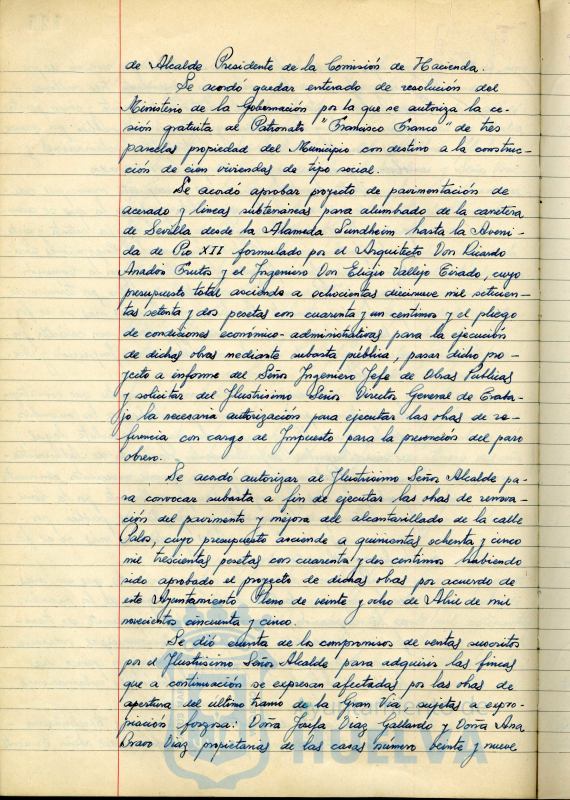 de Alcalde Presidente de la Comisión de Hacienda.
Se acordó quedar enterado de resolución del
Ministerio de la Gobernación por la que se autoriza la ce-
sión gratuita al Patronato "Francisco Franco" de tres
parcelas propiedad del Municipio con destino a la construc-
ción de cien viviendas de tipo social.
Se acordó aprobar proyecto de pavimentación de
acerado y lineas subterráneas para alumbrado de la carretera
de Sevilla desde la Alameda Sundheim hasta la Aveni-
da de Pio XII formulado por el Arquitecto Don Ricardo
Anadón Frutos y el Ingeniero Don Eligio Vallejo Tirado, cuyo
presupuesto total asciende a ochocientas diecinueve mil setecien-
tas setenta y dos pesetas con cuarenta y un centimos y el pliego
de condiciones económico-administrativas para la ejecución
de dichas obras mediante subasta pública, pasar dicho pro-
yecto a informe del Señor Ingeniero Jefe de Obras Públicas
y solicitar del Ilustrisimo Señor Director General de Traba-
jo la necesaria autorización para ejecutar las obras de re-
ferencia con cargo al Impuesto para la prevención del paro
obrero.
Se acordó autorizar al Ilustrisimo Señor Alcalde pa-
ra convocar subasta a fin de ejecutar las obras de renova-
ción del pavimento y mejora del alcantarillado de la calle
Palos, cuyo presupuesto asciende a quinientas ochenta y cinco
mil trescientas pesetas con cuarenta y dos centimos habiendo
sido aprobado el proyecto de dichas obras por acuerdo de
este Ayuntamiento Pleno de veinte y ocho de Abril de mil
novecientos cincuenta y cinco.
Se dió cuenta de los compromisos de ventas suscritos
por el Ilustrisimo Señor Alcalde para adquirir las fincas
que a continuación se expresan afectadas por las obras de
apertura del ultimo tramo de la Gran Via, sujetas a expro-
piación forzosa: Doña Josefa Diaz Gallardo y Doña Ana
Bravo Diaz propietarias de las casas numero veinte y nueve
HUELVA